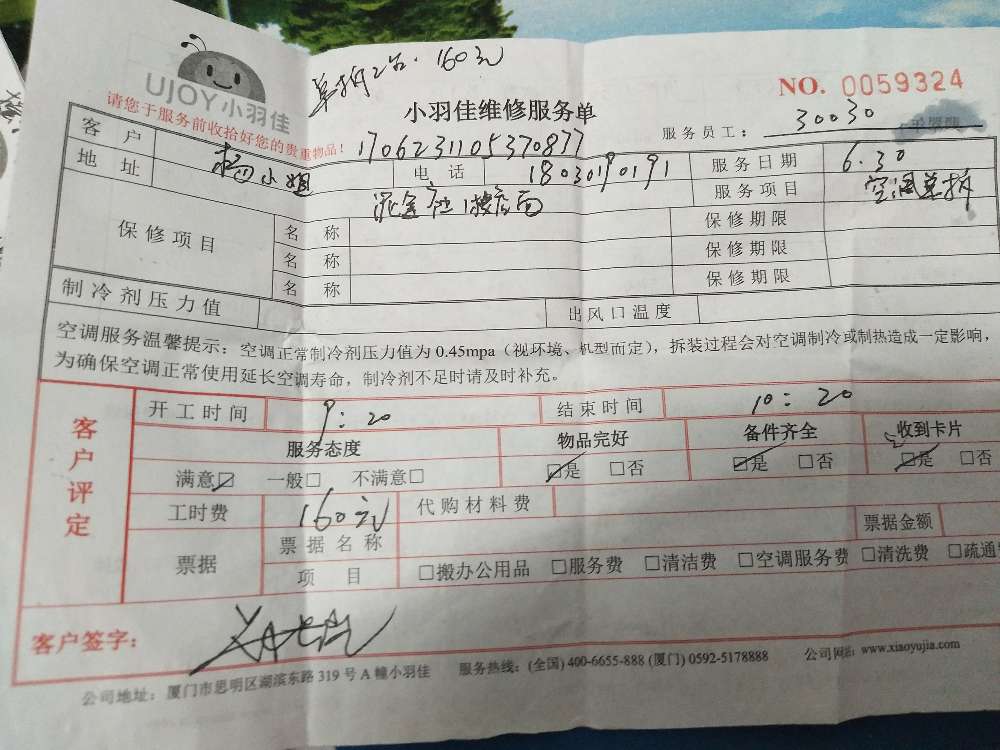 UJOY小羽佳
单拆2台. 160元
NO. 0059324
请您于服务前收拾好您的贵重物品!
小羽佳维修服务单
服务员工: 30030
客户 杨小姐
1706231105370877
电话 18030190191
服务日期 6.30
地址
服务项目 空调单拆
保修项目
名称 保修期限
名称 保修期限
名称 保修期限
制冷剂压力值 出风口温度
空调服务温馨提示: 空调正常制冷剂压力值为 0.45mpa (视环境、机型而定), 拆装过程会对空调制冷或制热造成一定影响,
为确保空调正常使用延长空调寿命, 制冷剂不足时请及时补充。
客户评定
开工时间 9:20 结束时间 10:20
服务态度 物品完好 备件齐全 收到卡片
满意☑ 一般□ 不满意□ ☑是 □否 ☑是 □否 ☑是 □否
工时费 160元 代购材料费
票据 票据名称 票据金额
项目 □搬办公用品 □服务费 □清洁费 □空调服务费 □清洗费 □疏通
客户签字:
公司地址: 厦门市思明区湖滨东路 319 号 A 幢小羽佳 服务热线: (全国) 400-6655-888 (厦门) 0592-5178888 公司网站: www.xiaoyujia.com